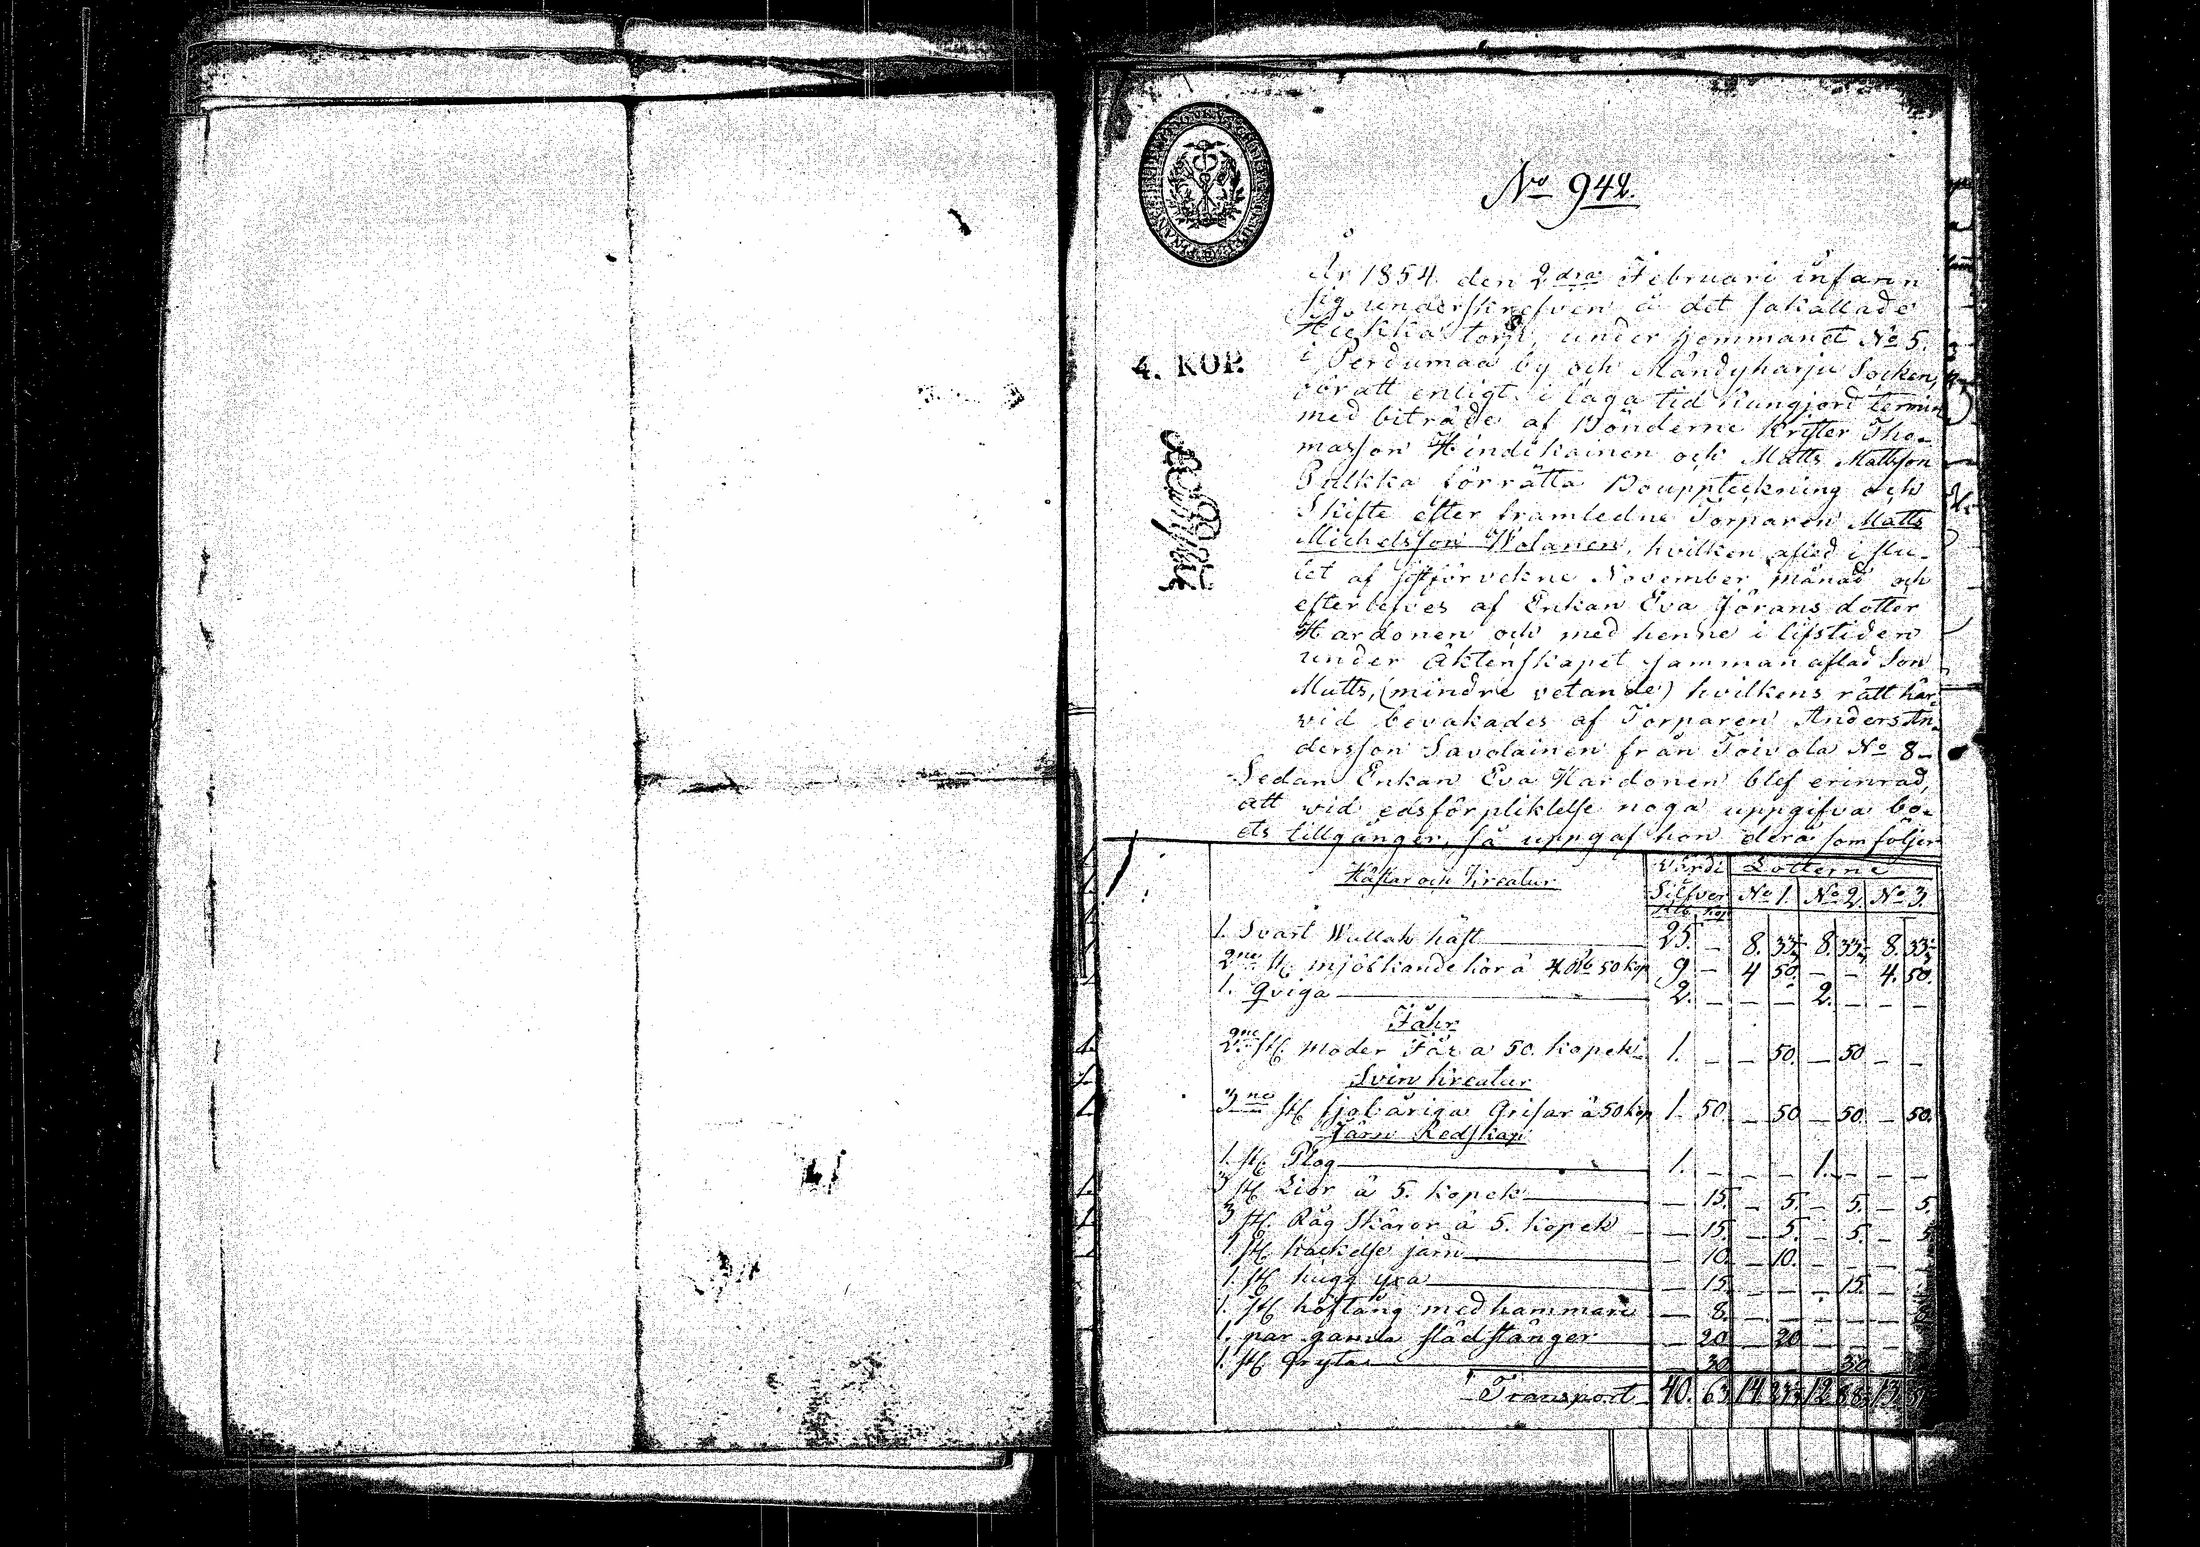 No 942.
År 1854 den 2dra Februari infann
sig underskrefven å det såkallade
torp, under hemmanet No 5.
i Perdumaa by och Mändyharju Socken,
för att enligt i laga tid kungjord termin
med biträde af Bönderne Krister Tho-
masson Hindikainen och Matts Mattsson
Pulkka förrätta Bouppteckning och
Skifte efter framledne Torparen Matts
Michelsson Wolanen, hvilken afled i slu-
tet af sistförvekne November månad och
efterlefves af Enkan Eva Jörans dotter
Hardonen och med henne i lifstiden
under äktenskapet samman aflad Son
Matts, (mindre vetande) hvilkens rätt här-
vid bevakades af Torparen Anders An-
dersson Savolainen från Toivola No 8-
Sedan Enkan Eva Hardonen blef erinrad,
att vid edsförpliktelse noga uppgifva bo-
ets tillgånger, så uppgaf hon dera som följer
4. KOP.
Hästar och Kreatur Värdi Lotterne
Silfver No 1. No 2. No 3.
Rub. Kop.
1. Svart Wallak häst 25. – 8. 33⅓ 8. 33⅓ 8. 33⅓
2ne st. mjölkande kor à 4 Rub 50 kop 9 – 4 50. – – 4. 50.
1. qviga 2. – – – 2. – – –
Fåhr
2ne st. moder Får a 50. kopek 1. – – 50. – 50 – –
Svin kreatur
3ne st. fjolåriga Grisar à 50 kop 1. 50. – 50 – 50. – 50.
Järn Redskap
1. st. Plog 1. – – – 1. – – –
3 st. Liar à 5. kopek – 15. – 5. – 5. – 5.
3 st. Råg skäror à 5. kopek – 15. – 5. – 5. – 5
1. st. hackelse järn – 10. – 10. – – – –
1. st. hugg yxa – 15. – – – 15. – –
1. st. hoftång med hammare – 8. – – – – – 8
1. par gamla slädstänger – 20 – 20 – – – –
1. st. Gryta – 30 – – – 30
Transport 40. 63. 14. 23⅓ 12. 88⅓ 13. 51⅓